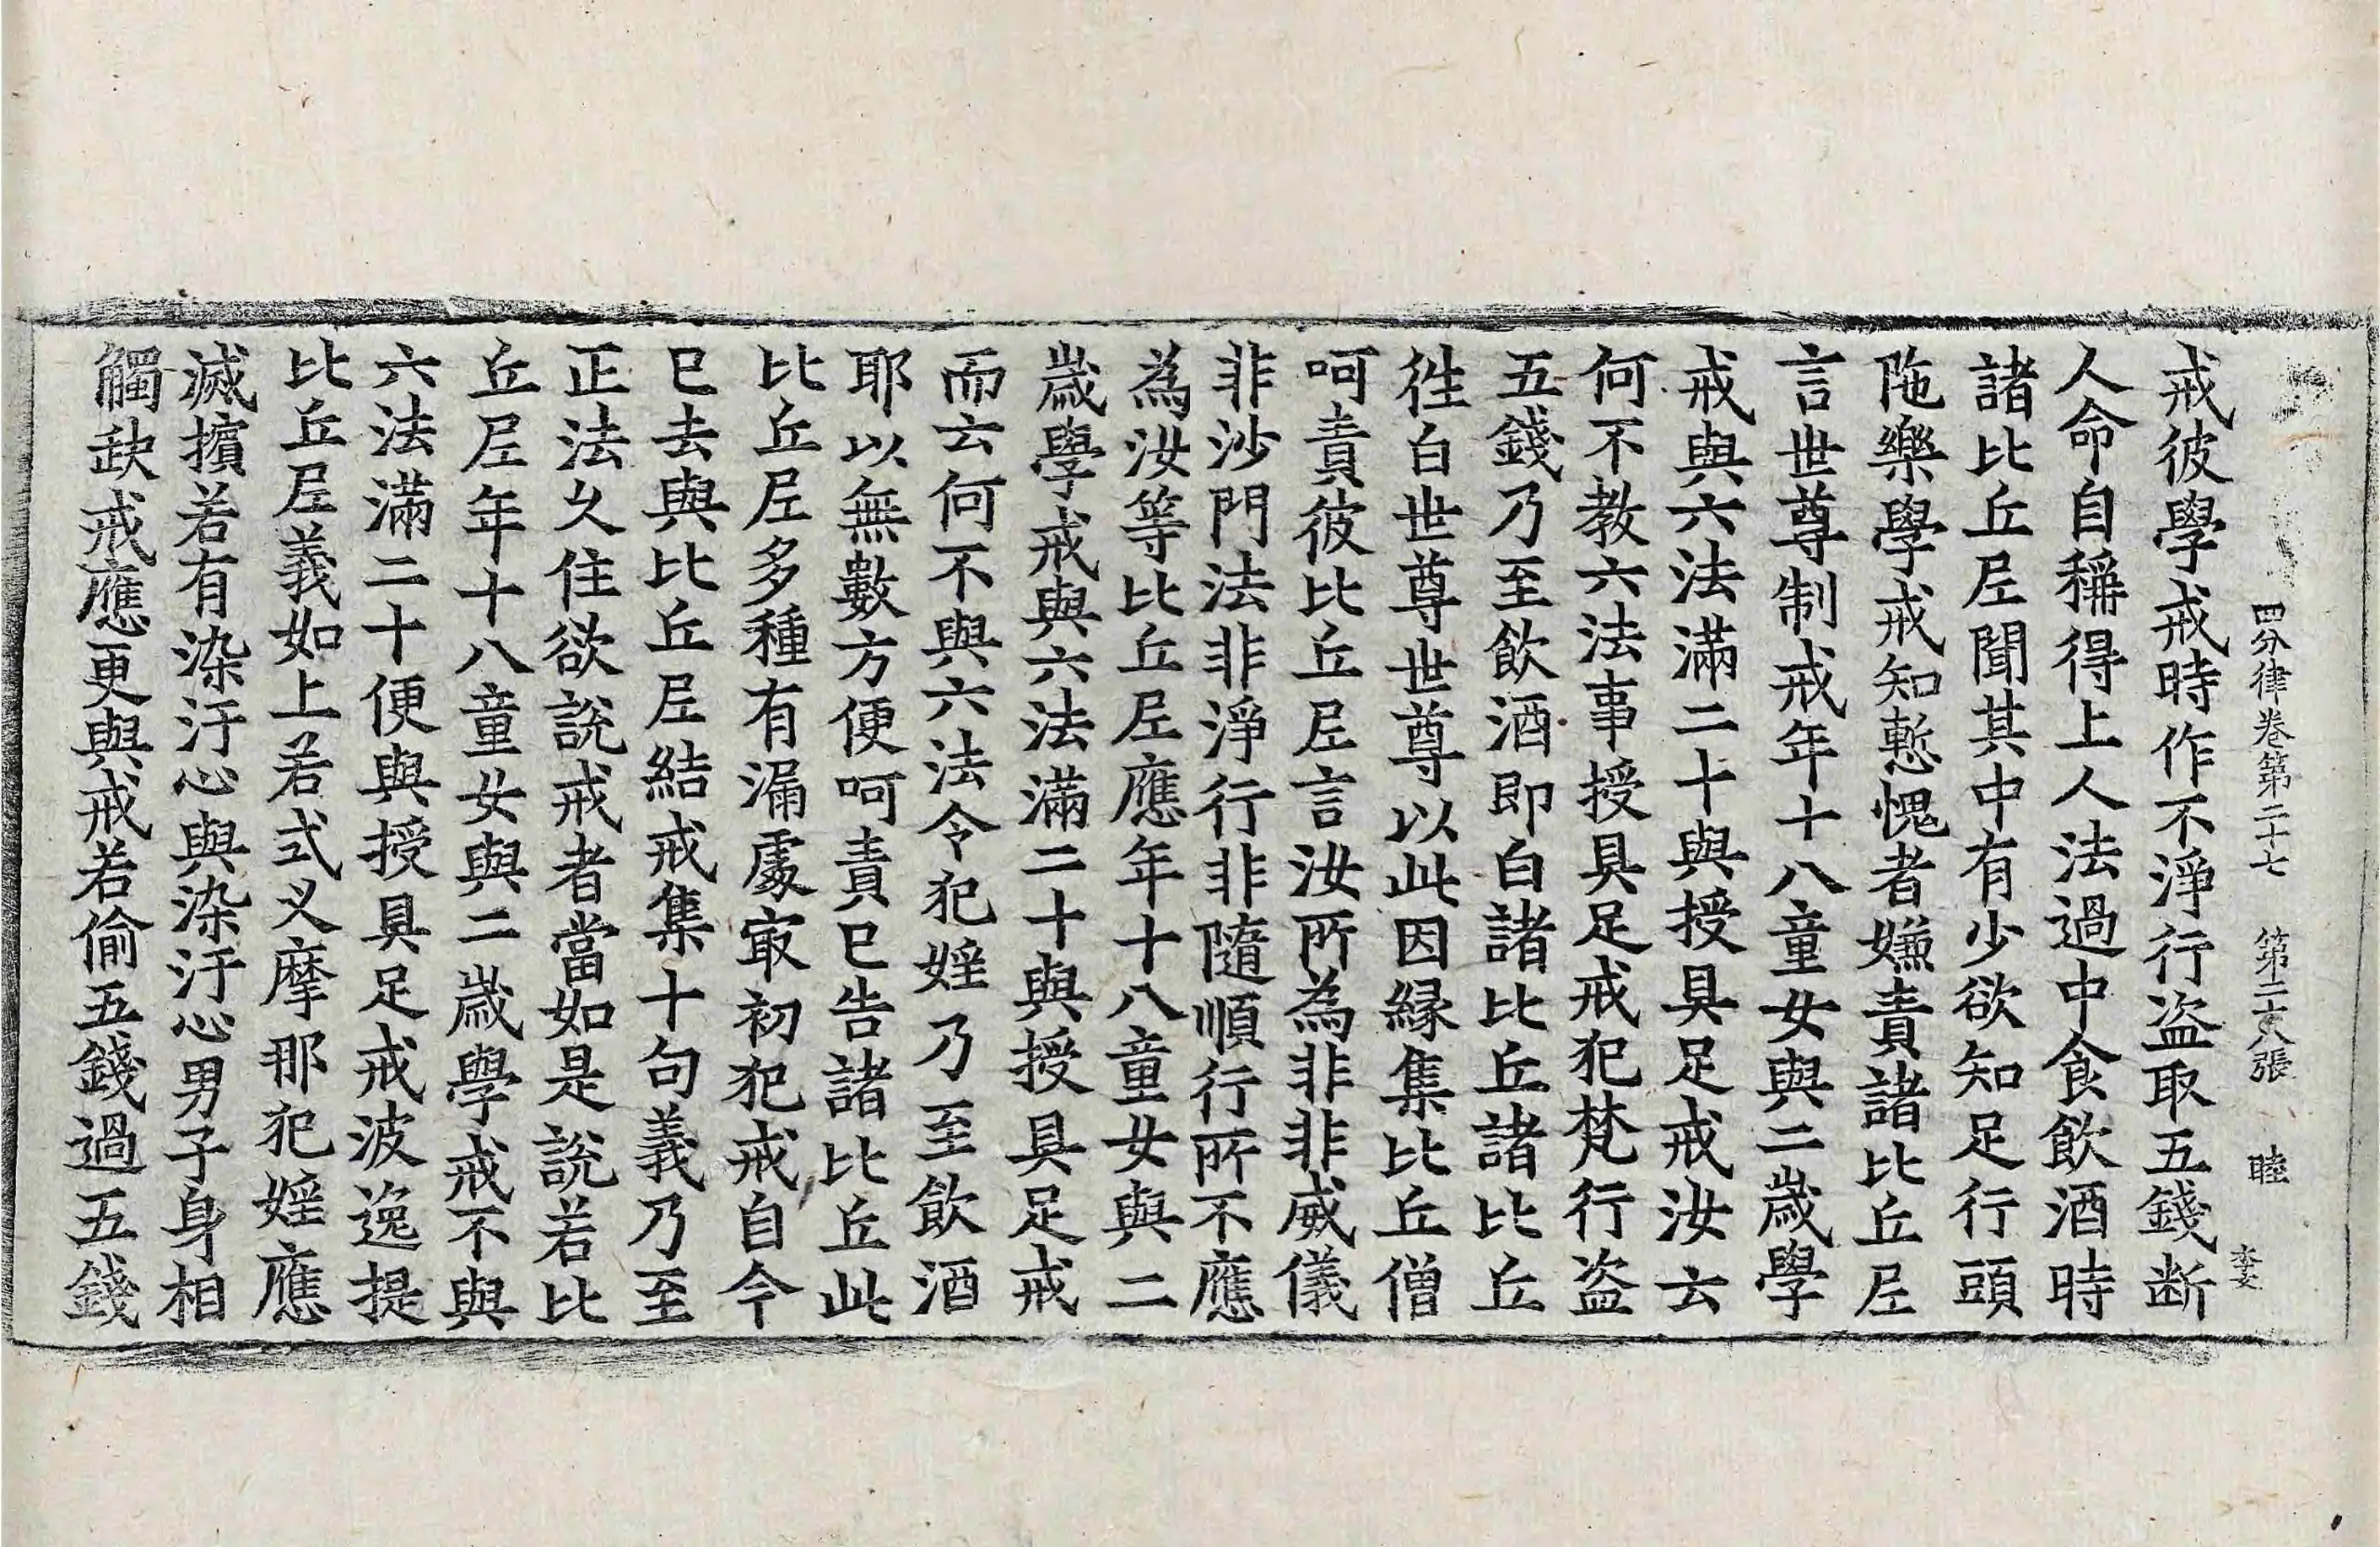 四分律卷第二十七　第二十八張　睦
戒彼學戒時作不淨行盗取五錢断
人命自稱得上人法過中食飲酒時
諸比丘尼聞其中有少欲知足行頭
陁樂學戒知慙愧者嫌責諸比丘尼
言世尊制戒年十八童女與二歲學
戒與六法滿二十與授具足戒汝云
何不教六法事授具足戒犯梵行盗
五錢乃至飲酒即白諸比丘諸比丘
徃白世尊世尊以此因縁集比丘僧
呵責彼比丘尼言汝所為非非威儀
非沙門法非淨行非隨順行所不應
為汝等比丘尼應年十八童女與二
歲學戒與六法滿二十與授具足戒
而云何不與六法令犯婬乃至飲酒
耶以無數方便呵責已告諸比丘此
比丘尼多種有漏處㝡初犯戒自今
已去與比丘尼結戒集十句義乃至
正法久住欲說戒者當如是說若比
丘尼年十八童女與二歲學戒不與
六法滿二十便與授具足戒波逸提
比丘尼義如上若式叉摩那犯婬應
滅擯若有染汙心與染汙心男子身相
觸缺戒應更與戒若偷五錢過五錢